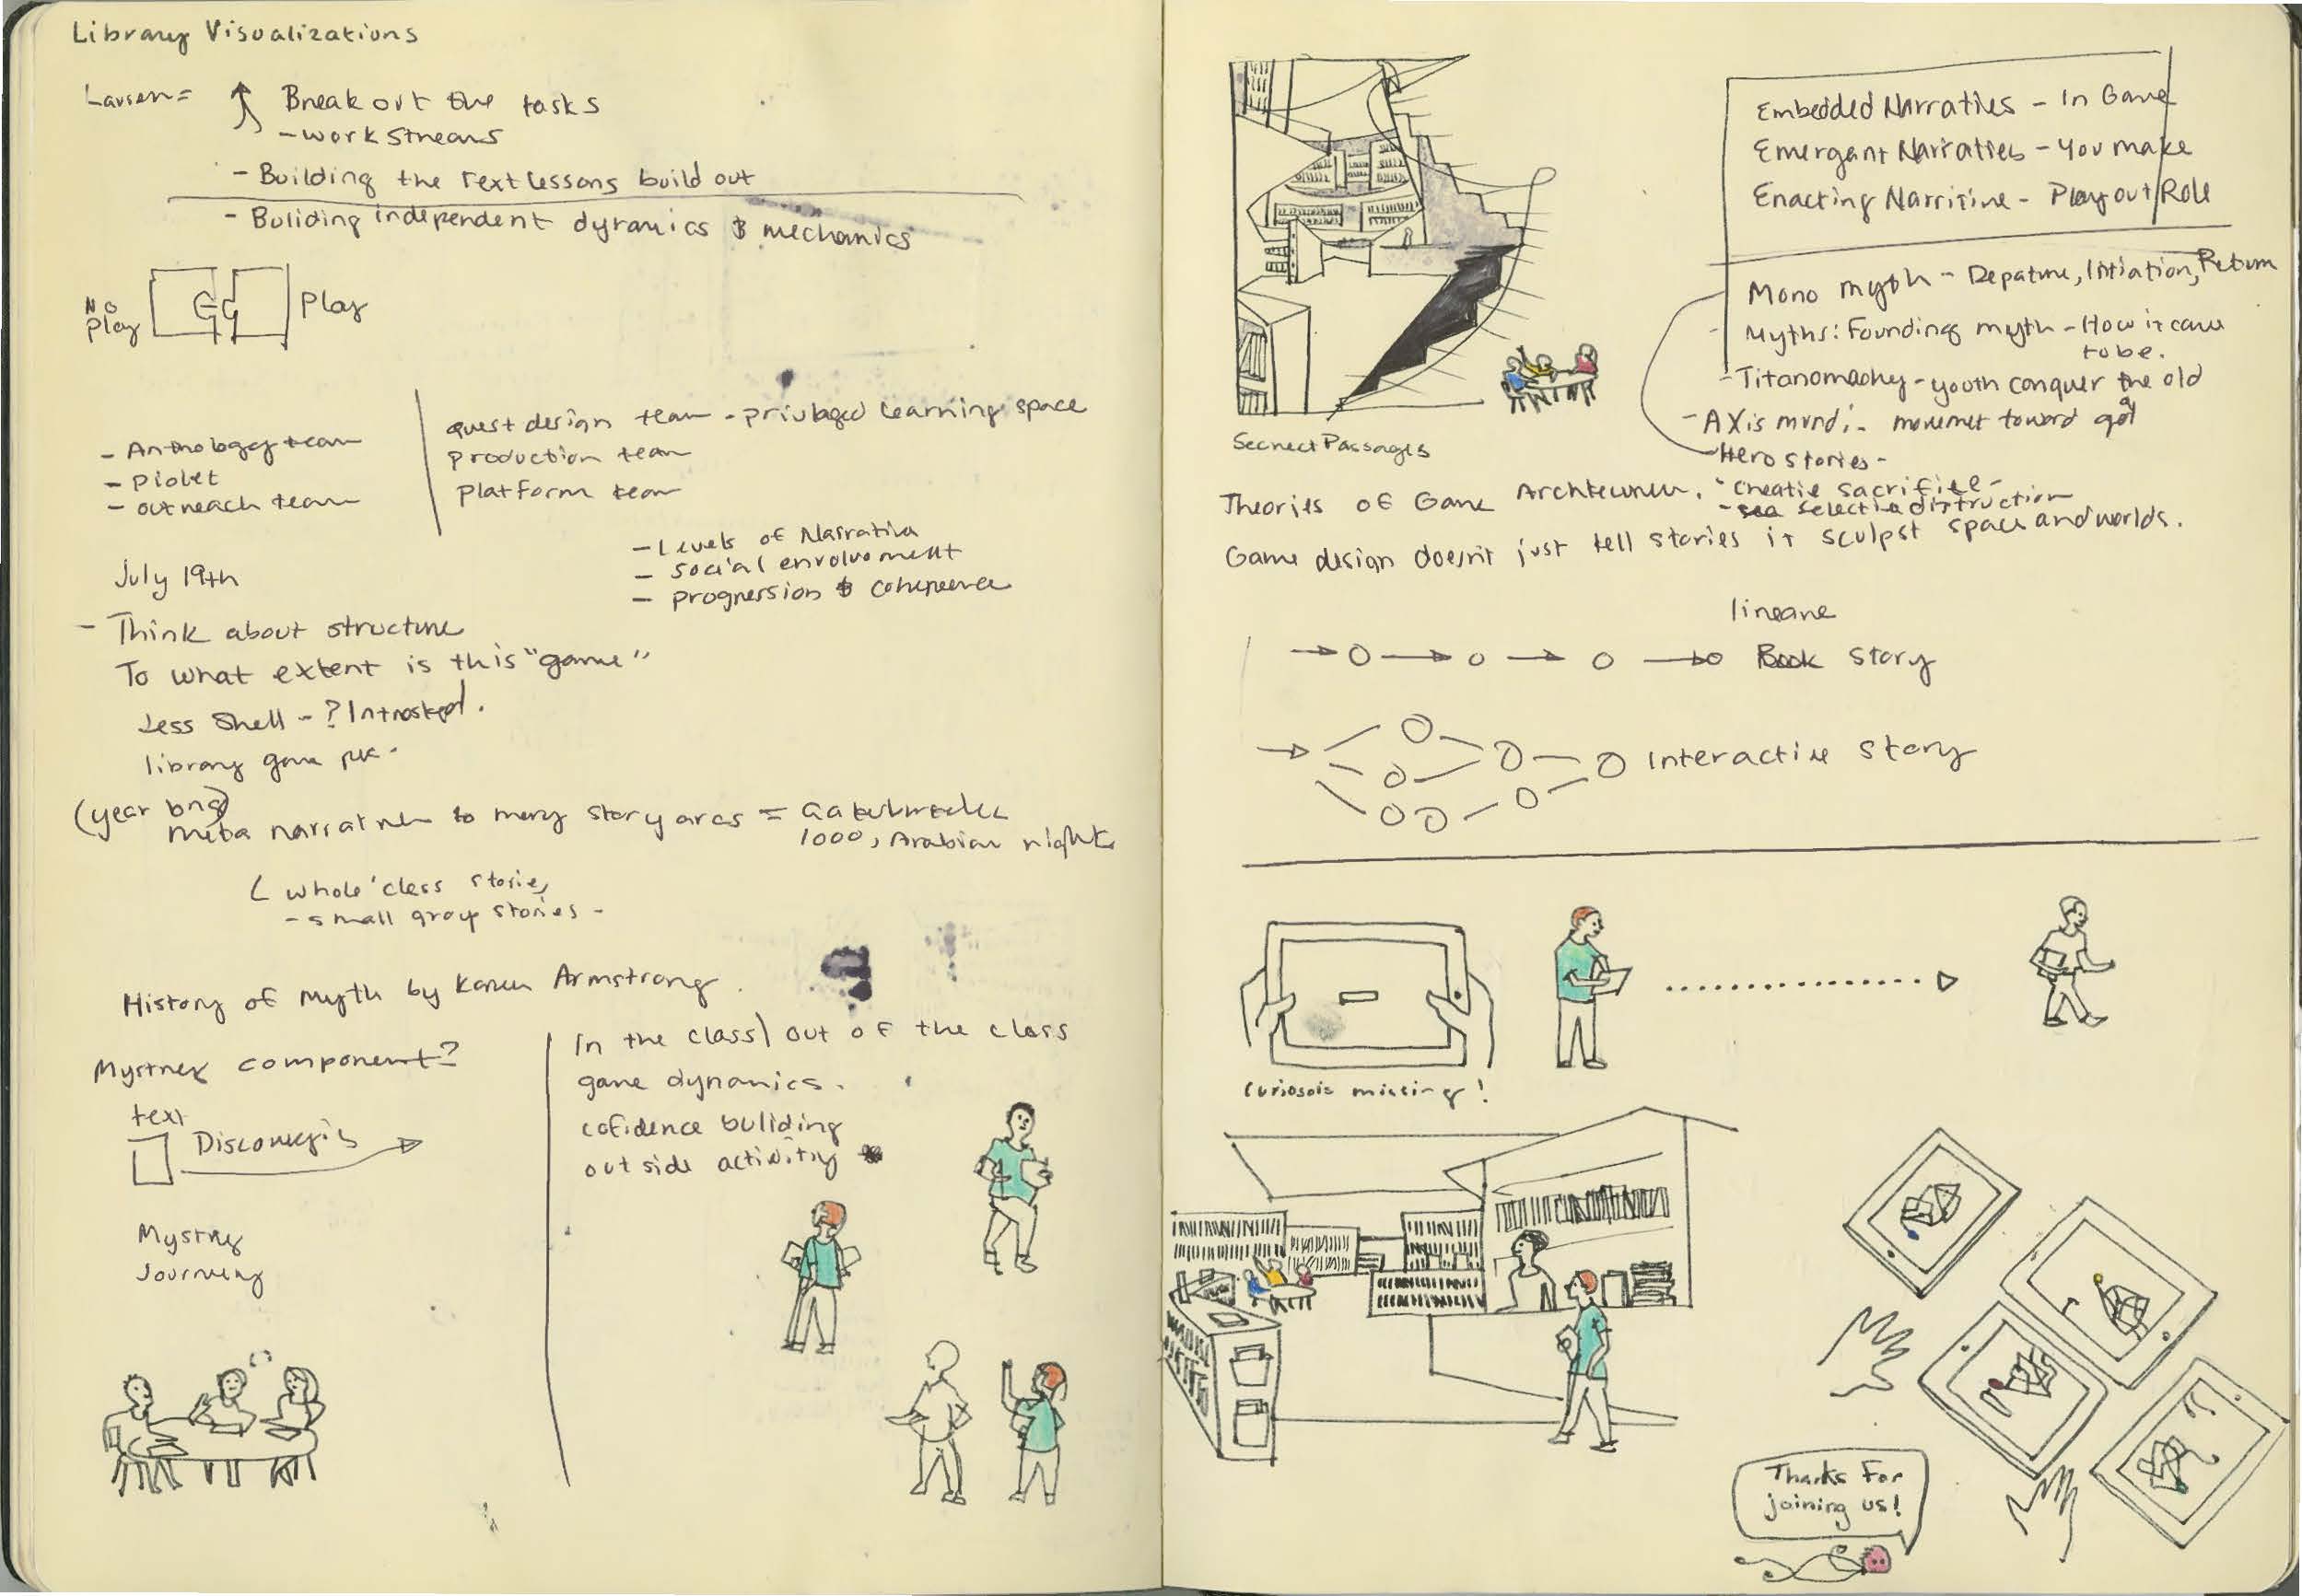 Library Visualizations
Larsen = Break out the tasks
- work streams
- Building the Text lessons build out
- Buliding independent dynamics & mechanics
No
Play
Play
- Anthology team
- Piolet
- outreach team
quest design team - privlaged learning space
production team
platform team
- Levels of Narrativ
- social envolvement
- progression & coherence
July 19th
- Think about structure
To what extent is this "game"
Less Shell - ?
library game
(year
meta narrative to many story arcs =
1000, Arabian nights
whole class stories
- small group stories -
History of Myth by Karen Armstrong.
Mystery component?
text
Mystery
Journey
In the class\ out of the class
game dynamics.
cofidence buliding
outside activitiy
Secrect Passages
Embedded Narraties - In Game
Emergant Narraties - You make
Enacting Narritive - Play out Role
Mono myth - Depature, Intiation, Return
- Myths: Foundings myth - How it came
to be.
- Titanomachy - youth conquer the old
- Axis mundi - movemet toward god
- Hero stories -
Theories of Game Archtecture.
"Creative sacrifice -
- selective distruction
Game design doesn't just tell stories it sculpst space and worlds.
lineare
Book story
Interactive story
missing!
Thanks For
joining us!